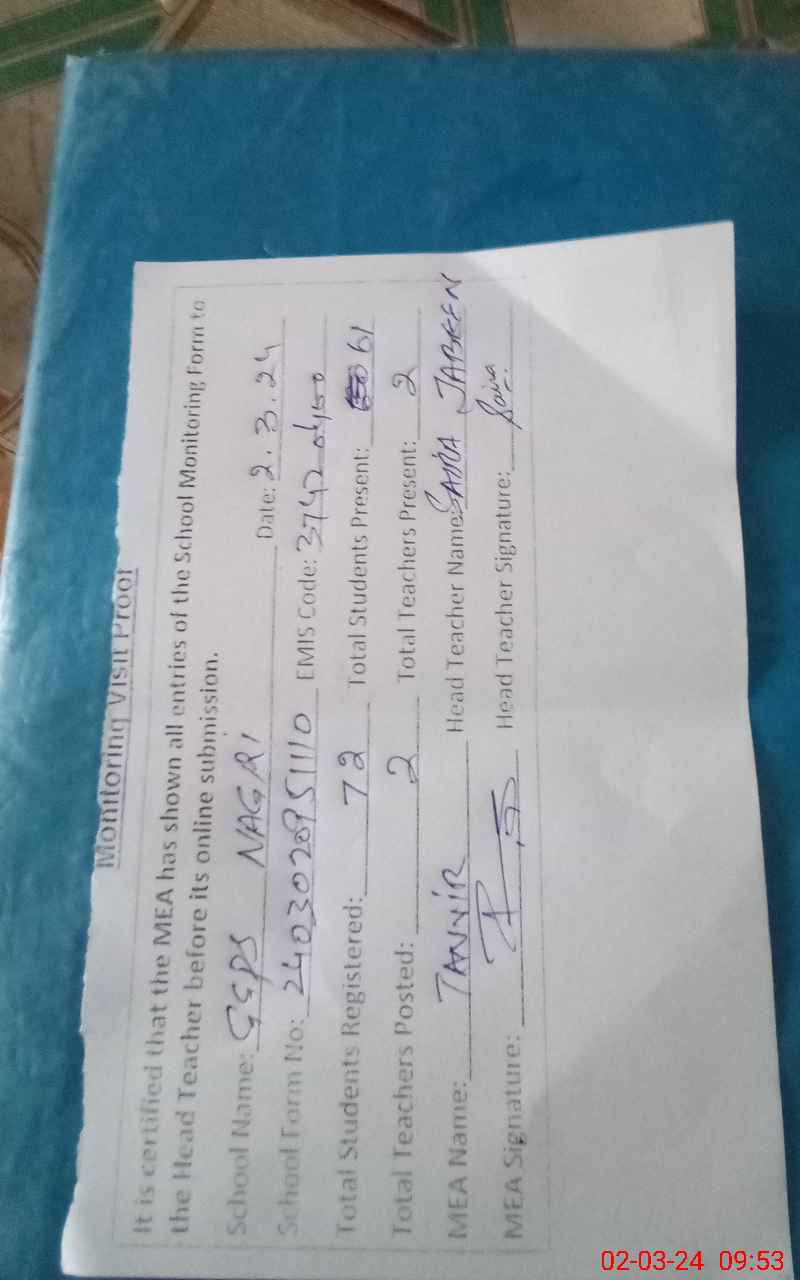 Monitoring Visit Proof
It is certified that the MEA has shown all entries of the School Monitoring Form to
the Head Teacher before its online submission.
School Name: GEPS NAGRI Date: 2.3.24
School Form No: EMIS Code:
Total Students Registered: 72 Total Students Present: 61
Total Teachers Posted: 2 Total Teachers Present: 2
MEA Name: TANVIR Head Teacher Name: SAIRA JABEEN
MEA Signature: Head Teacher Signature: Saira
02-03-24 09:53